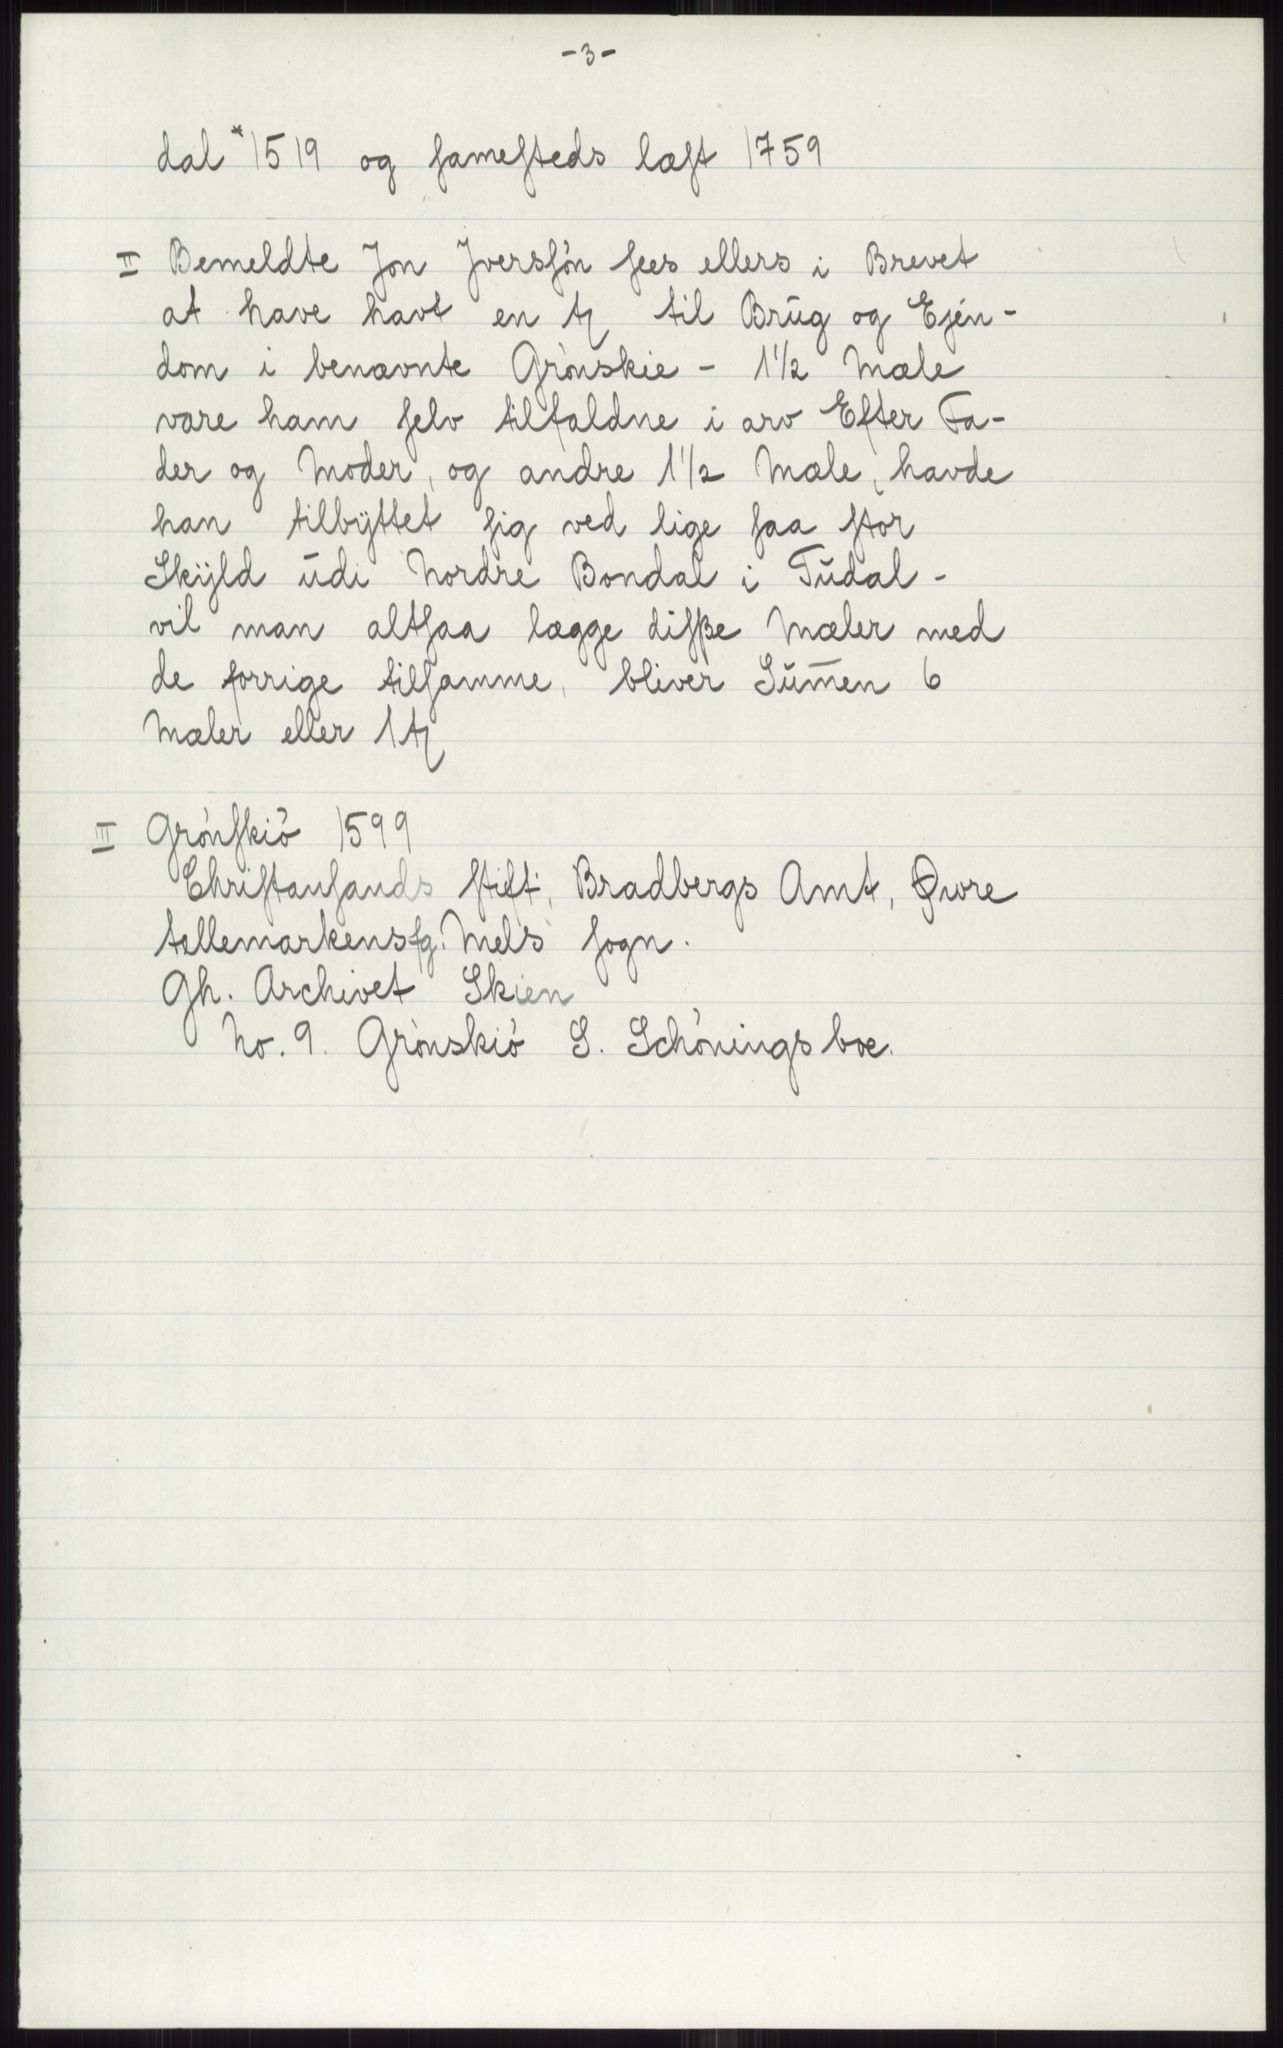 -3-
dal * 1519 og ſameſteds læſt 1759
II Bemeldte Jon Jversſón ſees ellers i Brevet
at have havt en tꝫ til Brūg og Ején-
dom i benævnte Grónskie - 1 1/2 Mæle
vare ham ſelv tilfaldne i arv Efter Fa-
der og Moder, og andre 1 1/2 Mæle, havde
han tilbÿttet ſig ved lige ſaa ſtor
Skÿld ūdi Nordre Bondal i Tūdal -
vil man altſaa lægge diſße Mæler med
de forrige tilſamme, bliver Sūm̄en 6
Mæler eller 1 tꝫ
III Grónſkió 1599
Chriſtanſands ſtift, Bradbergs Amt, Øvre
tellemarkensfg. Mels ſogn.
Gh. Archivet Skien
No. 9. Grónskió S. Schónings boe.